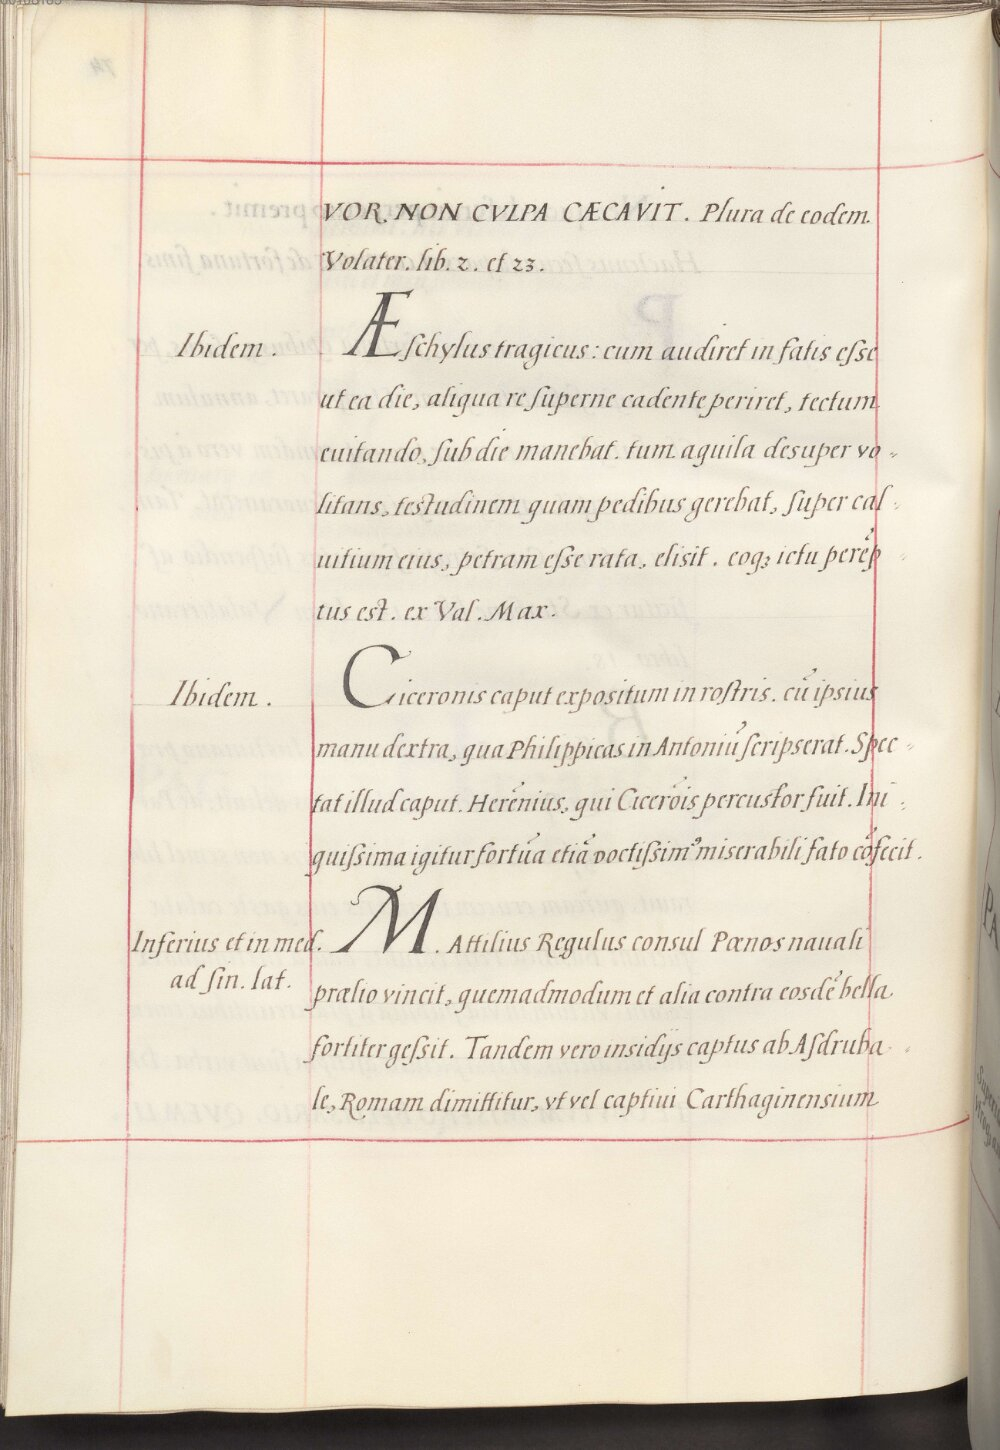 VOR. NON CVLPA CÆCAVIT. Plura de eodem
Volater. lib. 2. et 23.
Ibidem.
Æſchylus tragicus: cum audiret in fatis eſse
ut ea die, aliqua re ſuperne cadente periret, tectum
euitando, ſub die manebat. tum aquila desuper vo-
litans, testudinem quam pedibus gerebat, ſuper cal-
uitium eius, petram eſse rata, elisit. eoqꝫ ictu perēp-
tus est. ex Val. Max.
Ibidem.
Ciceronis caput expositum in roſtris. cū ipsius
manu dextra, qua Philippicas in Antoniū ſcripserat. Spec-
tat illud caput. Herēnius, qui Cicerōis percustor fuit. Ini-
quiſsima igitur fortūa etiā doctiſsim⁹ miserabili fato cōfecit.
Inferius et in med.
ad ſin. lat.
M. Attilius Regulus consul Pœnos nauali
prælio vincit, quemadmodum et alia contra eosdē bella
fortiter geſsit. Tandem vero insidijs captus ab Aſdruba-
le, Romam dimittitur, vt vel captiui Carthaginensium